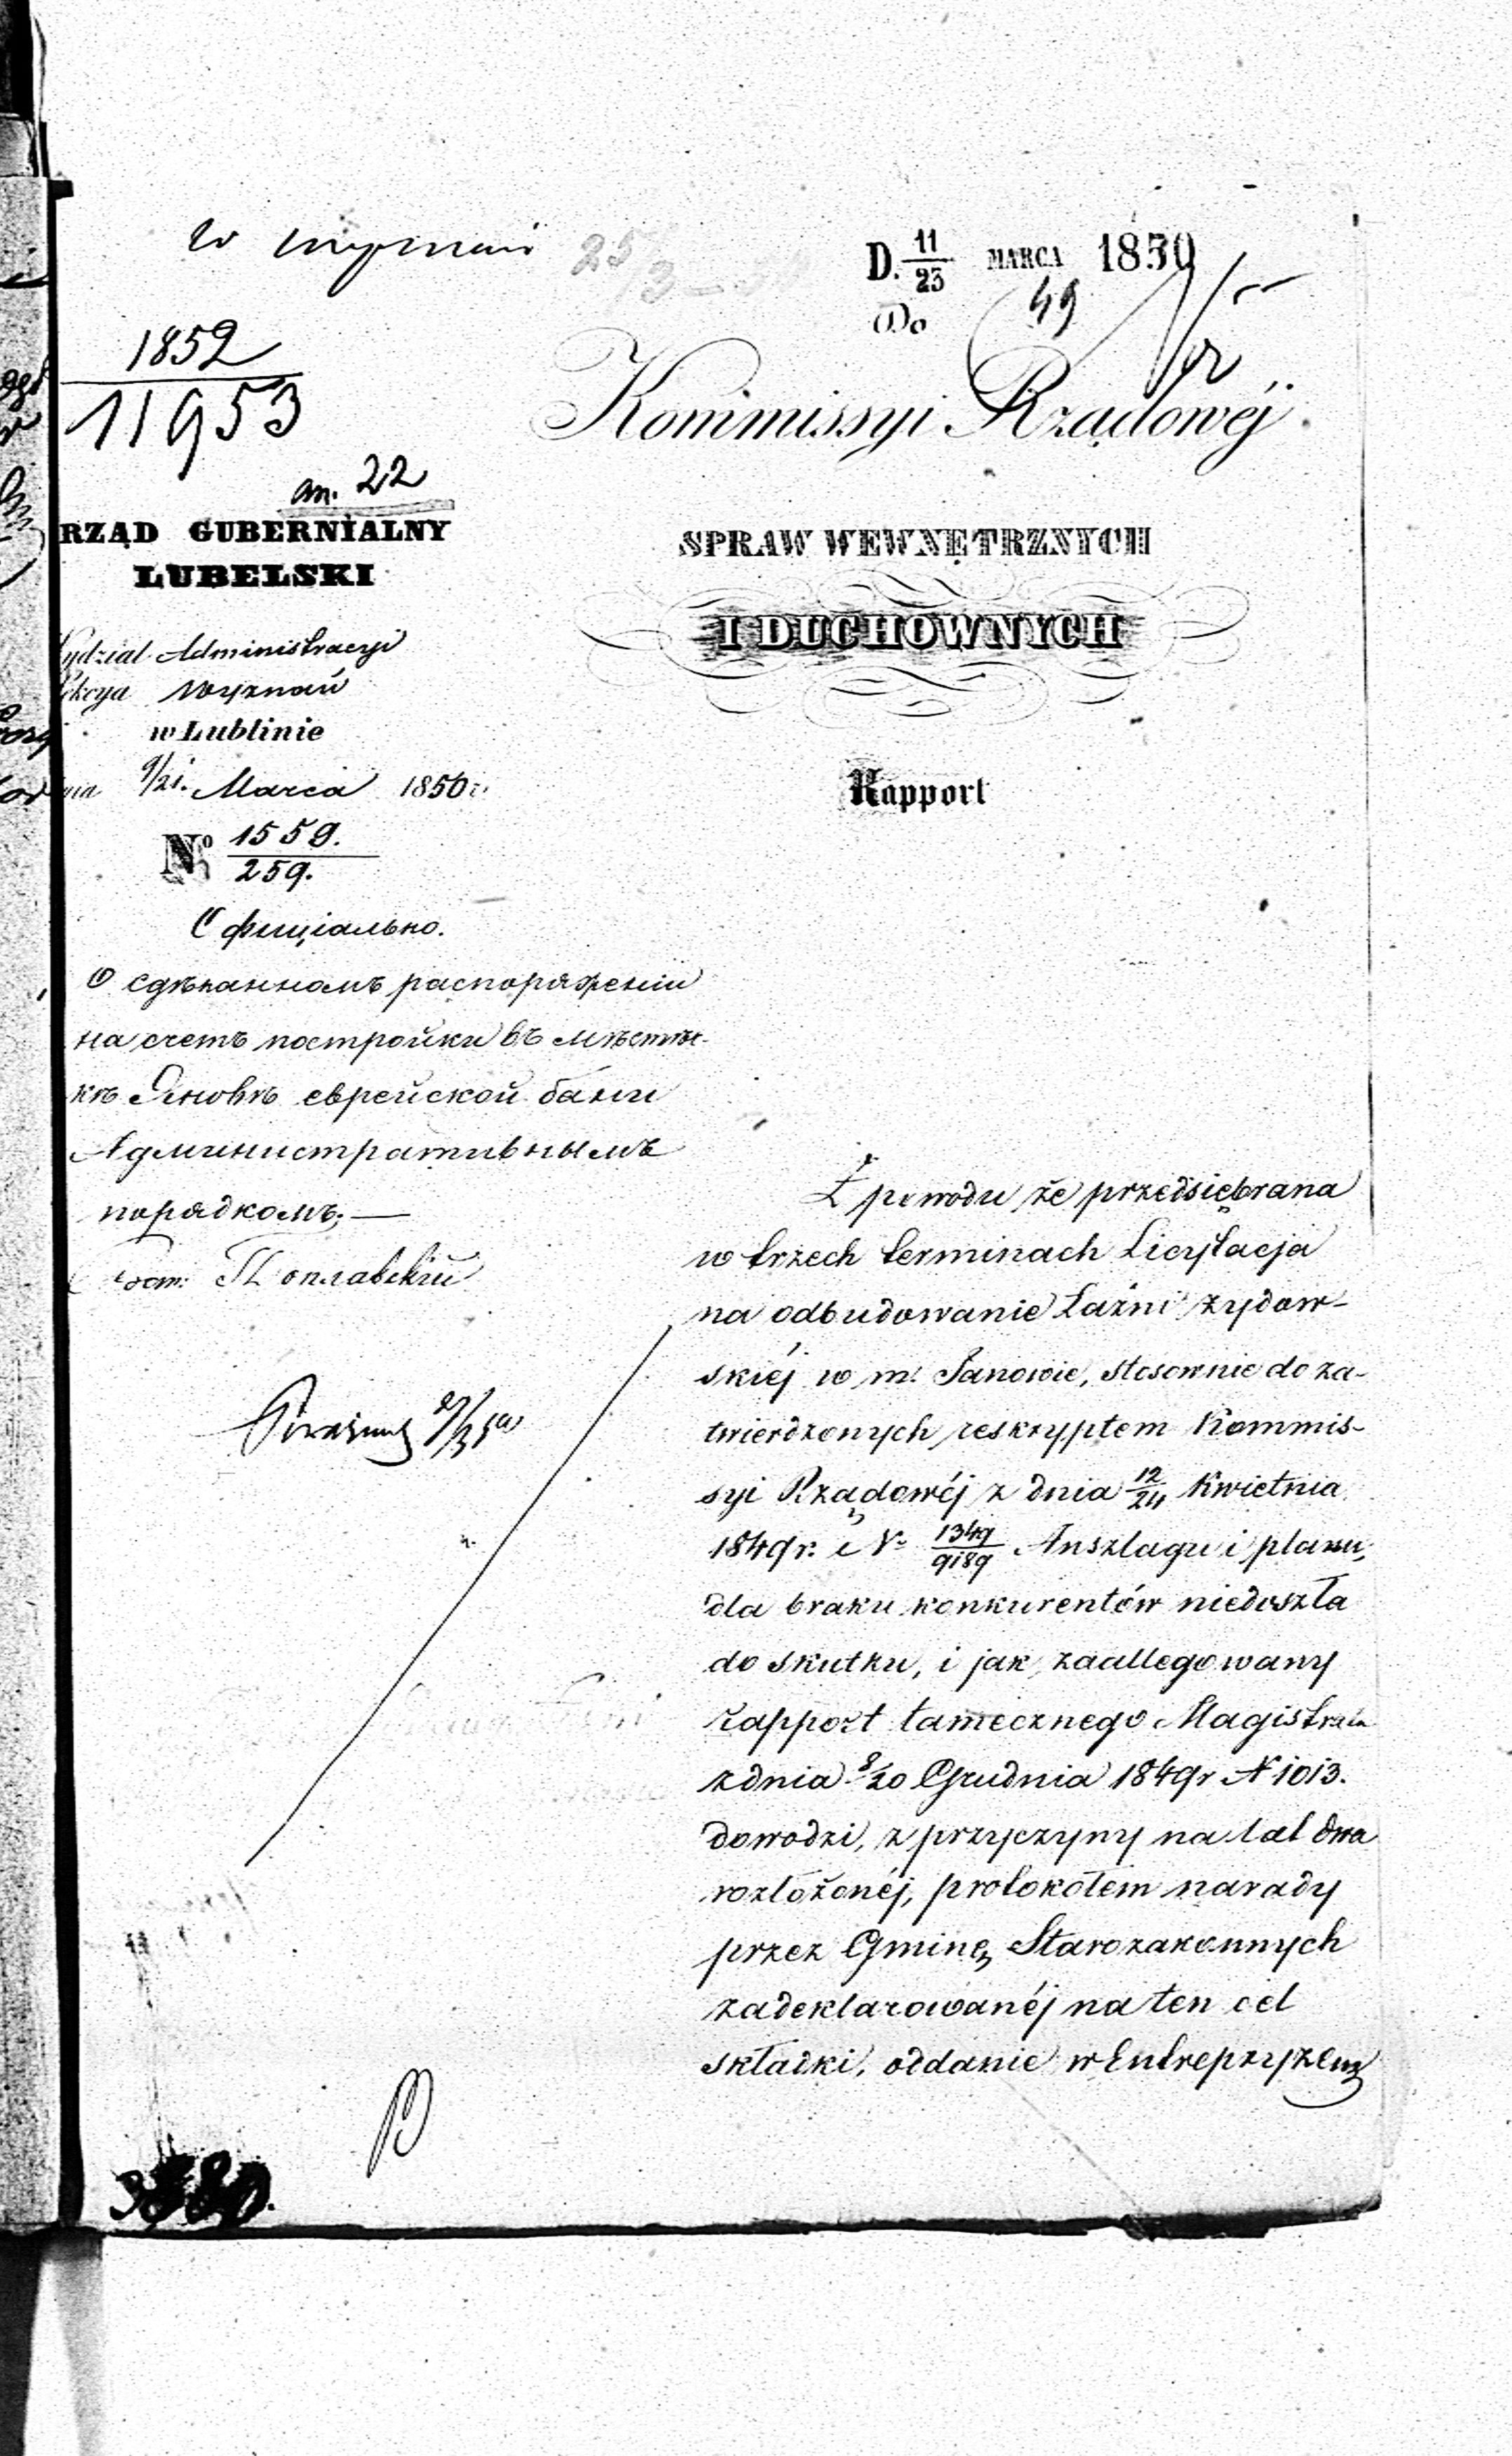 D. 11/23 MARCA 1850
49
Do
1852
11953
an. 22
Kommissyi Rządowéj
RZĄD GUBERNIALNY
LUBELSKI
SPRAW WEWNĘTRZNYCH
I DUCHOWNYCH
Wydział Administracyi
Sekcya Wyznań
w Lublinie
9/21. Marca 1850 r.
Rapport
No 1559./259.
Офиціально.
О сдѣланномъ распоряженіи
на счетъ постройки въ мѣстеч-
кѣ Яновѣ еврейской бани
Административнымъ
порядкомъ;—
Поплавскій
Z powodu że przedsiębrana
w trzech terminach Licytacja
na odbudowanie Łaźni żydow-
skiéj w m. Janowie, stosownie do za-
twierdzonych reskryptem Kommis-
syi Rządowéj z dnia 12/24 Kwietnia
1849 r. i N. 1349/9189 Anszlagu i planu,
dla braku konkurentów niedoszła
do skutku, i jak zaallegowany
rapport tamecznego Magistratu
z dnia 8/20 Grudnia 1849 r N 1013.
dowodzi, z przyczyny na lat dwa
rozłożonéj, protokołem narady
przez Gminę Starozakonnych
zadeklarowanéj na ten cel
składki, oddanie w Entrepryzę